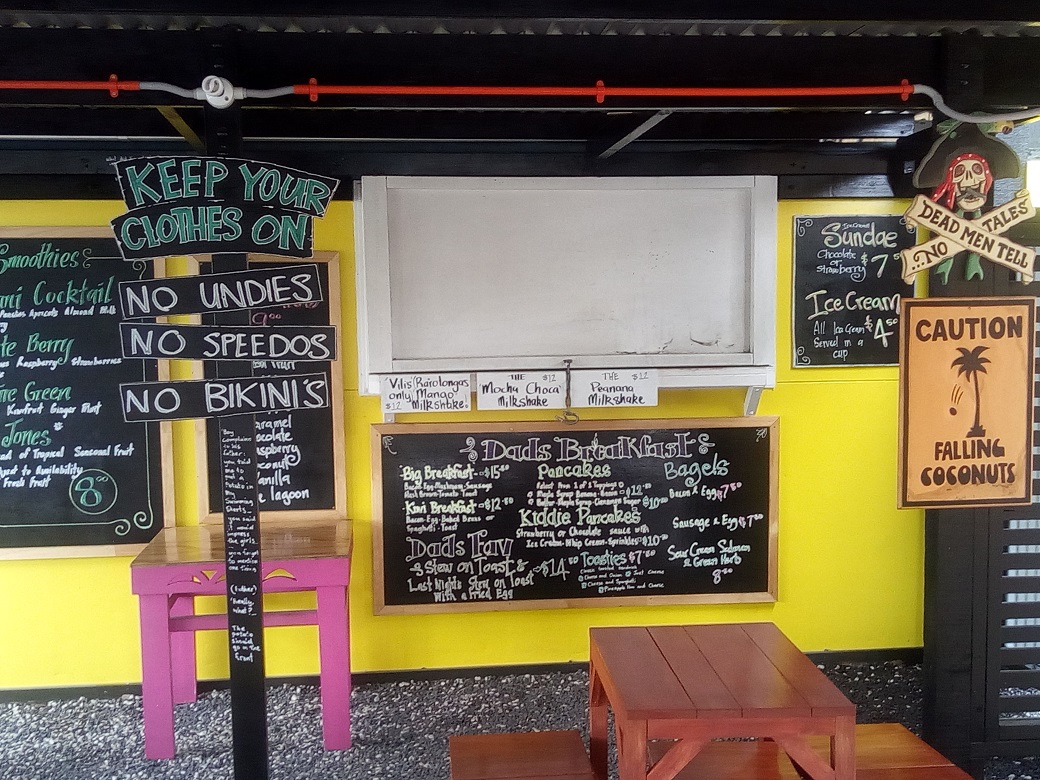 KEEP YOUR
CLOTHES ON
NO UNDIES
NO SPEEDOS
NO BIKINI'S
Smoothies
Cocktail
Peaches Apricots Almond Milk
Berry
Raspberry Strawberries
Green
Kiwifruit Ginger Mint
Jones
of Tropical Seasonal Fruit
to Availability
Fresh Fruit
8.00
vanilla
lagoon
Boy
Complains
to his
father:
you told
me to
put a
potato in
my
Swimming
Shorts
you said
it would
impress
the girls
you forgot
to mention
one thing
(Father)
'Really,
what?'
The
potato
should
go in the
front
Vilis
only
$12
Rarotongas
Mango
Milkshake
THE $12
Mocha Choca
Milkshake
THE $12
Peanana
Milkshake
Dads Breakfasts
Big Breakfast $15.00
Bacon-Egg-Mushroom-Sausage
Hash Brown-Tomato-Toast
Kiwi Breakfast $12.50
Bacon-Egg-Baked Beans or
Spaghetti-Toast
Dads Fav
Stew on Toast $14.00
Last Nights Stew on Toast
With a Fried Egg
Pancakes
Select from 1 of 3 Toppings
Maple Syrup Banana-Bacon $12.00
Butter-Maple Syrup-Cinnamon Sugar $10.00
Kiddie Pancakes
Strawberry or Chocolate sauce
Ice Cream-Whip Cream-Sprinkles $10.00
Toasties $7.50
Cheese and Onion
Just Cheese
Cheese and Spaghetti
Pineapple Ham and Cheese
Bagels
Bacon & Egg $7.50
Sausage & Egg $7.50
Sour Cream Salmon
& Green Herb
8.50
Ice Cream
Sundae
Chocolate
or
Strawberry
$7.50
Ice Cream
All Ice Cream
Served in a
cup
$4.50
DEAD MEN TELL
NO TALES
CAUTION
FALLING
COCONUTS